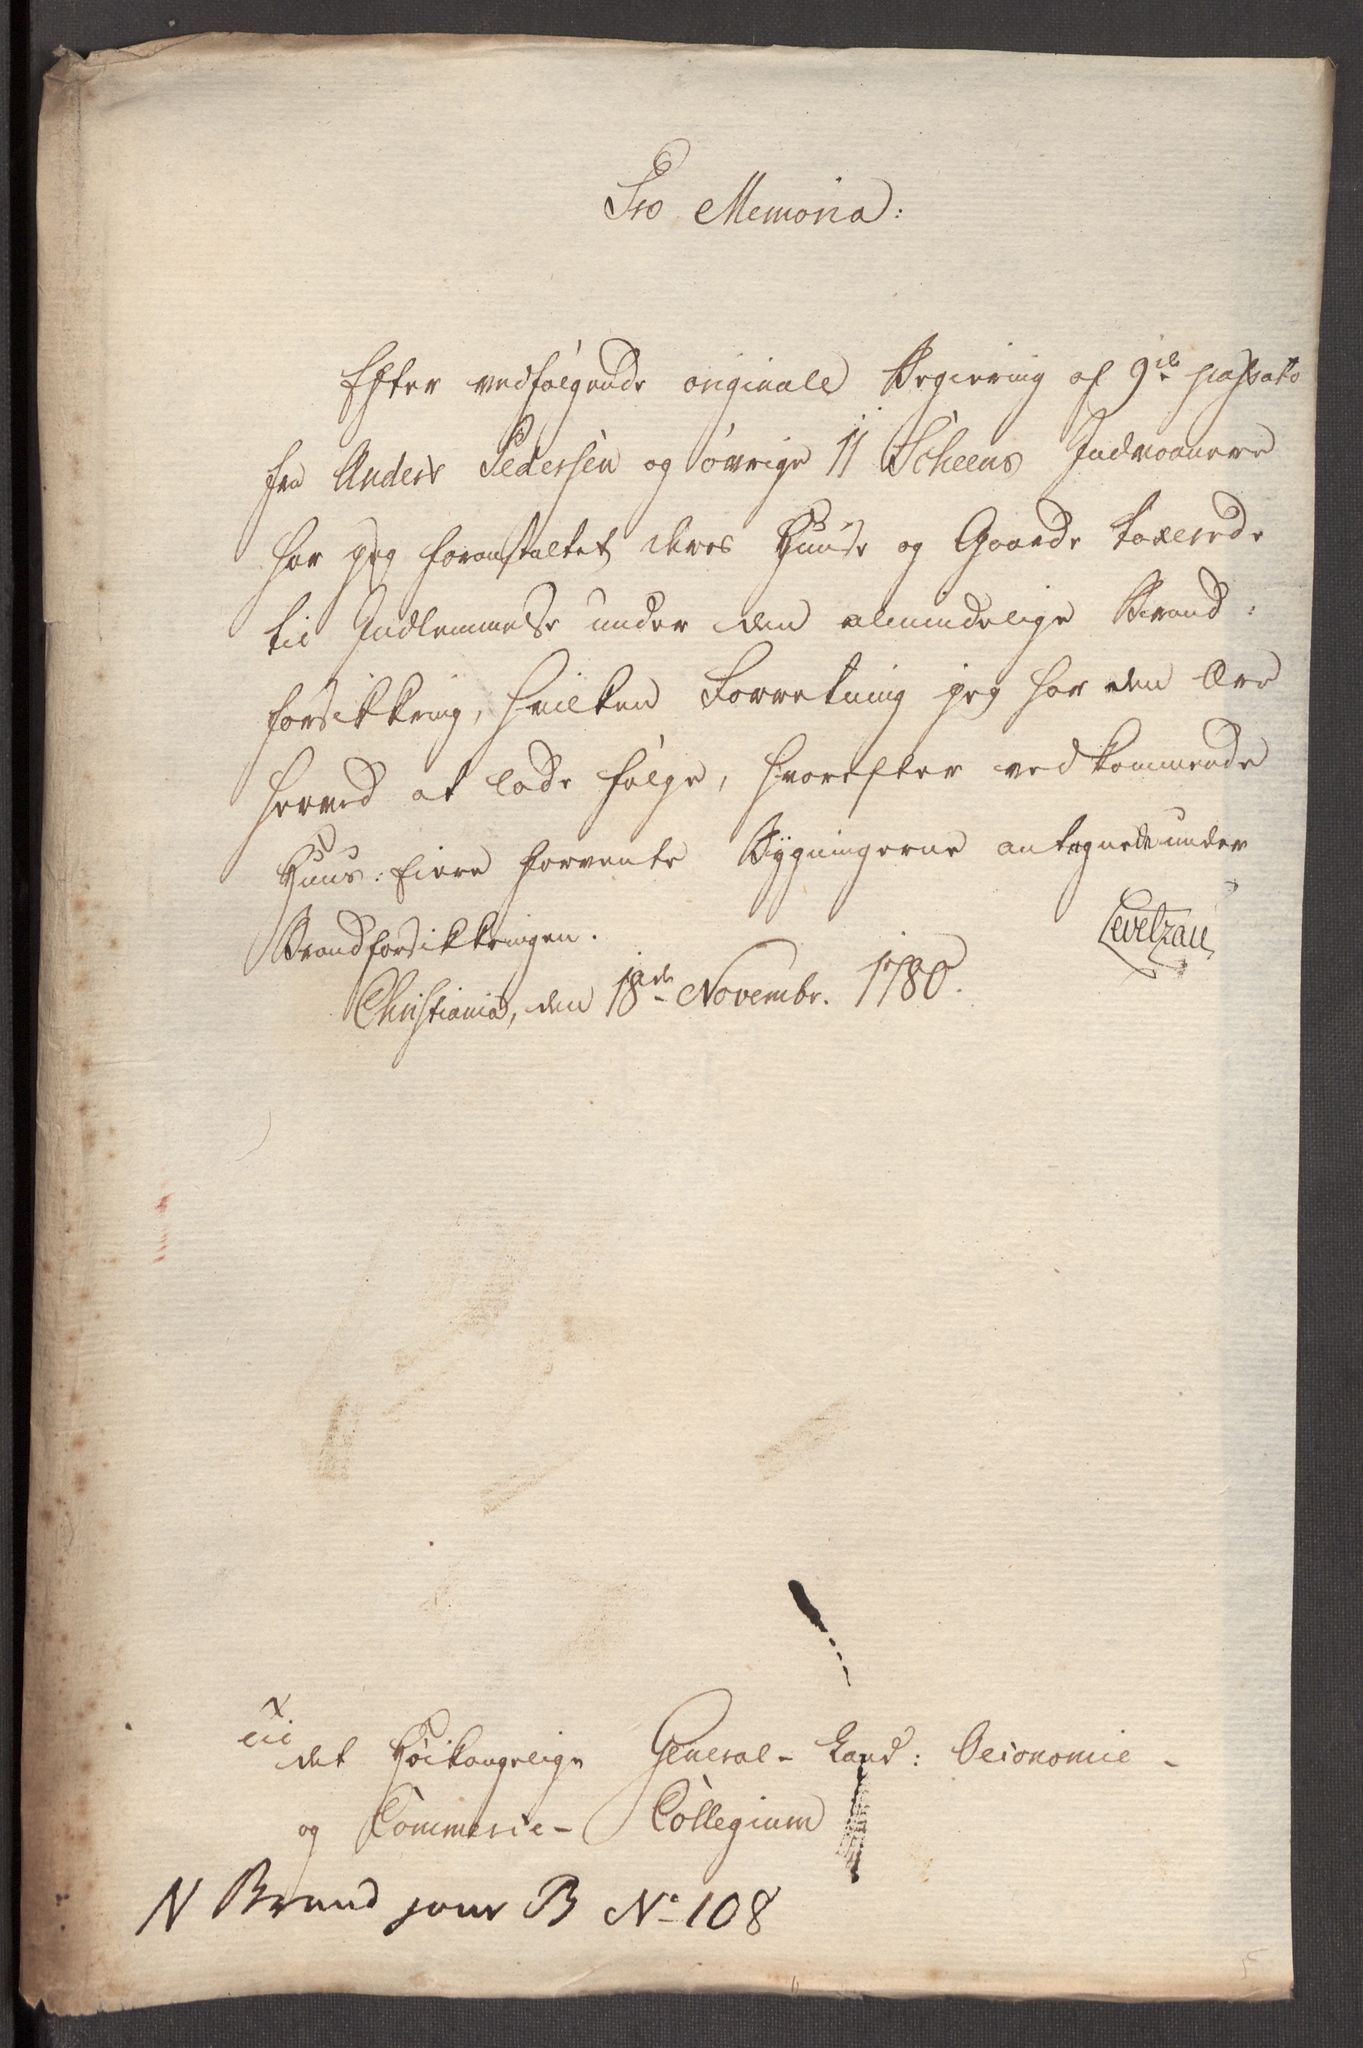 Pro Memoria:
Efter vedfølgende originale Begiering af 9de passato
fra Anders Pedersen og øvrige 11 Scheens Indvaanere
har jeg foranstaltet deres Huuse og Gaarde taxerede
til Indlemmelse under den almindelige Brand:
forsikkring, hvilken Forretning jeg har den Ære
herved at lade følge, hvorefter vedkommende
Huus: Eiere forvente Bygningerne antegnede under
Brandforsikkringen.
Levetzau
Christiania, den 18de Novembr. 1780.
Til
det Høikongelige General-Land: Oeconomie-
og Commerce-Collegium
N Brand jour B No 108
5